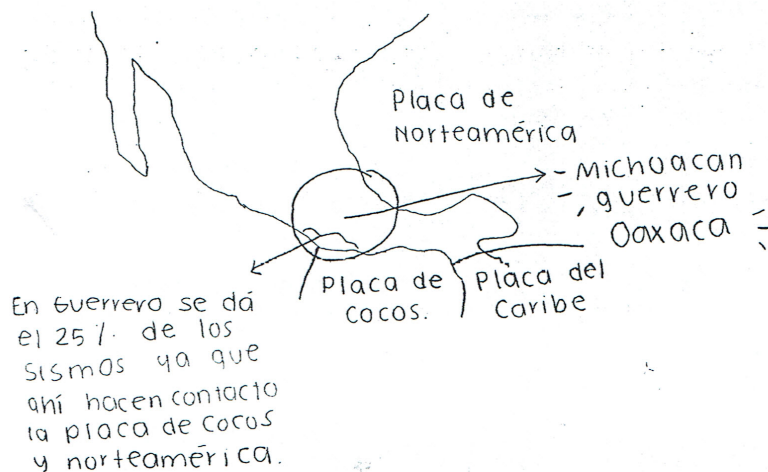 Placa de
Norteamérica
- Michoacan
-, guerrero
Oaxaca
Placa de
Cocos.
Placa del
Caribe
En Guerrero se dá
el 25%. de los
sismos ya que
ahí hacen contacto
la placa de Cocos
y norteamérica.